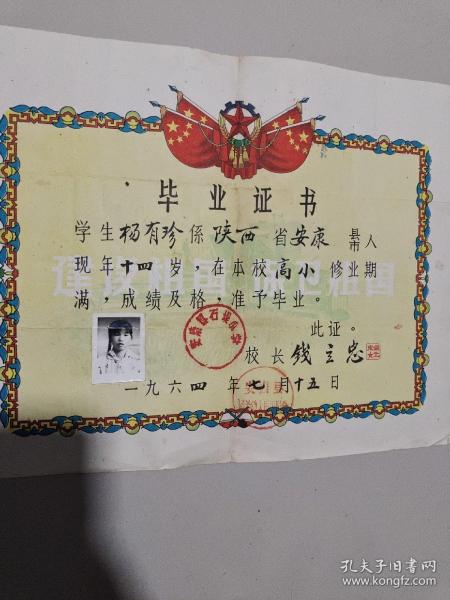 毕业证书
学生杨有珍係陕西省安康县市人
现年十四岁，在本校高小修业期
满，成绩及格，准予毕业。
此证。
校长钱立忠
一九六四年七月十五日
建设祖国 保卫祖国
孔夫子旧书网
www.kongfz.com